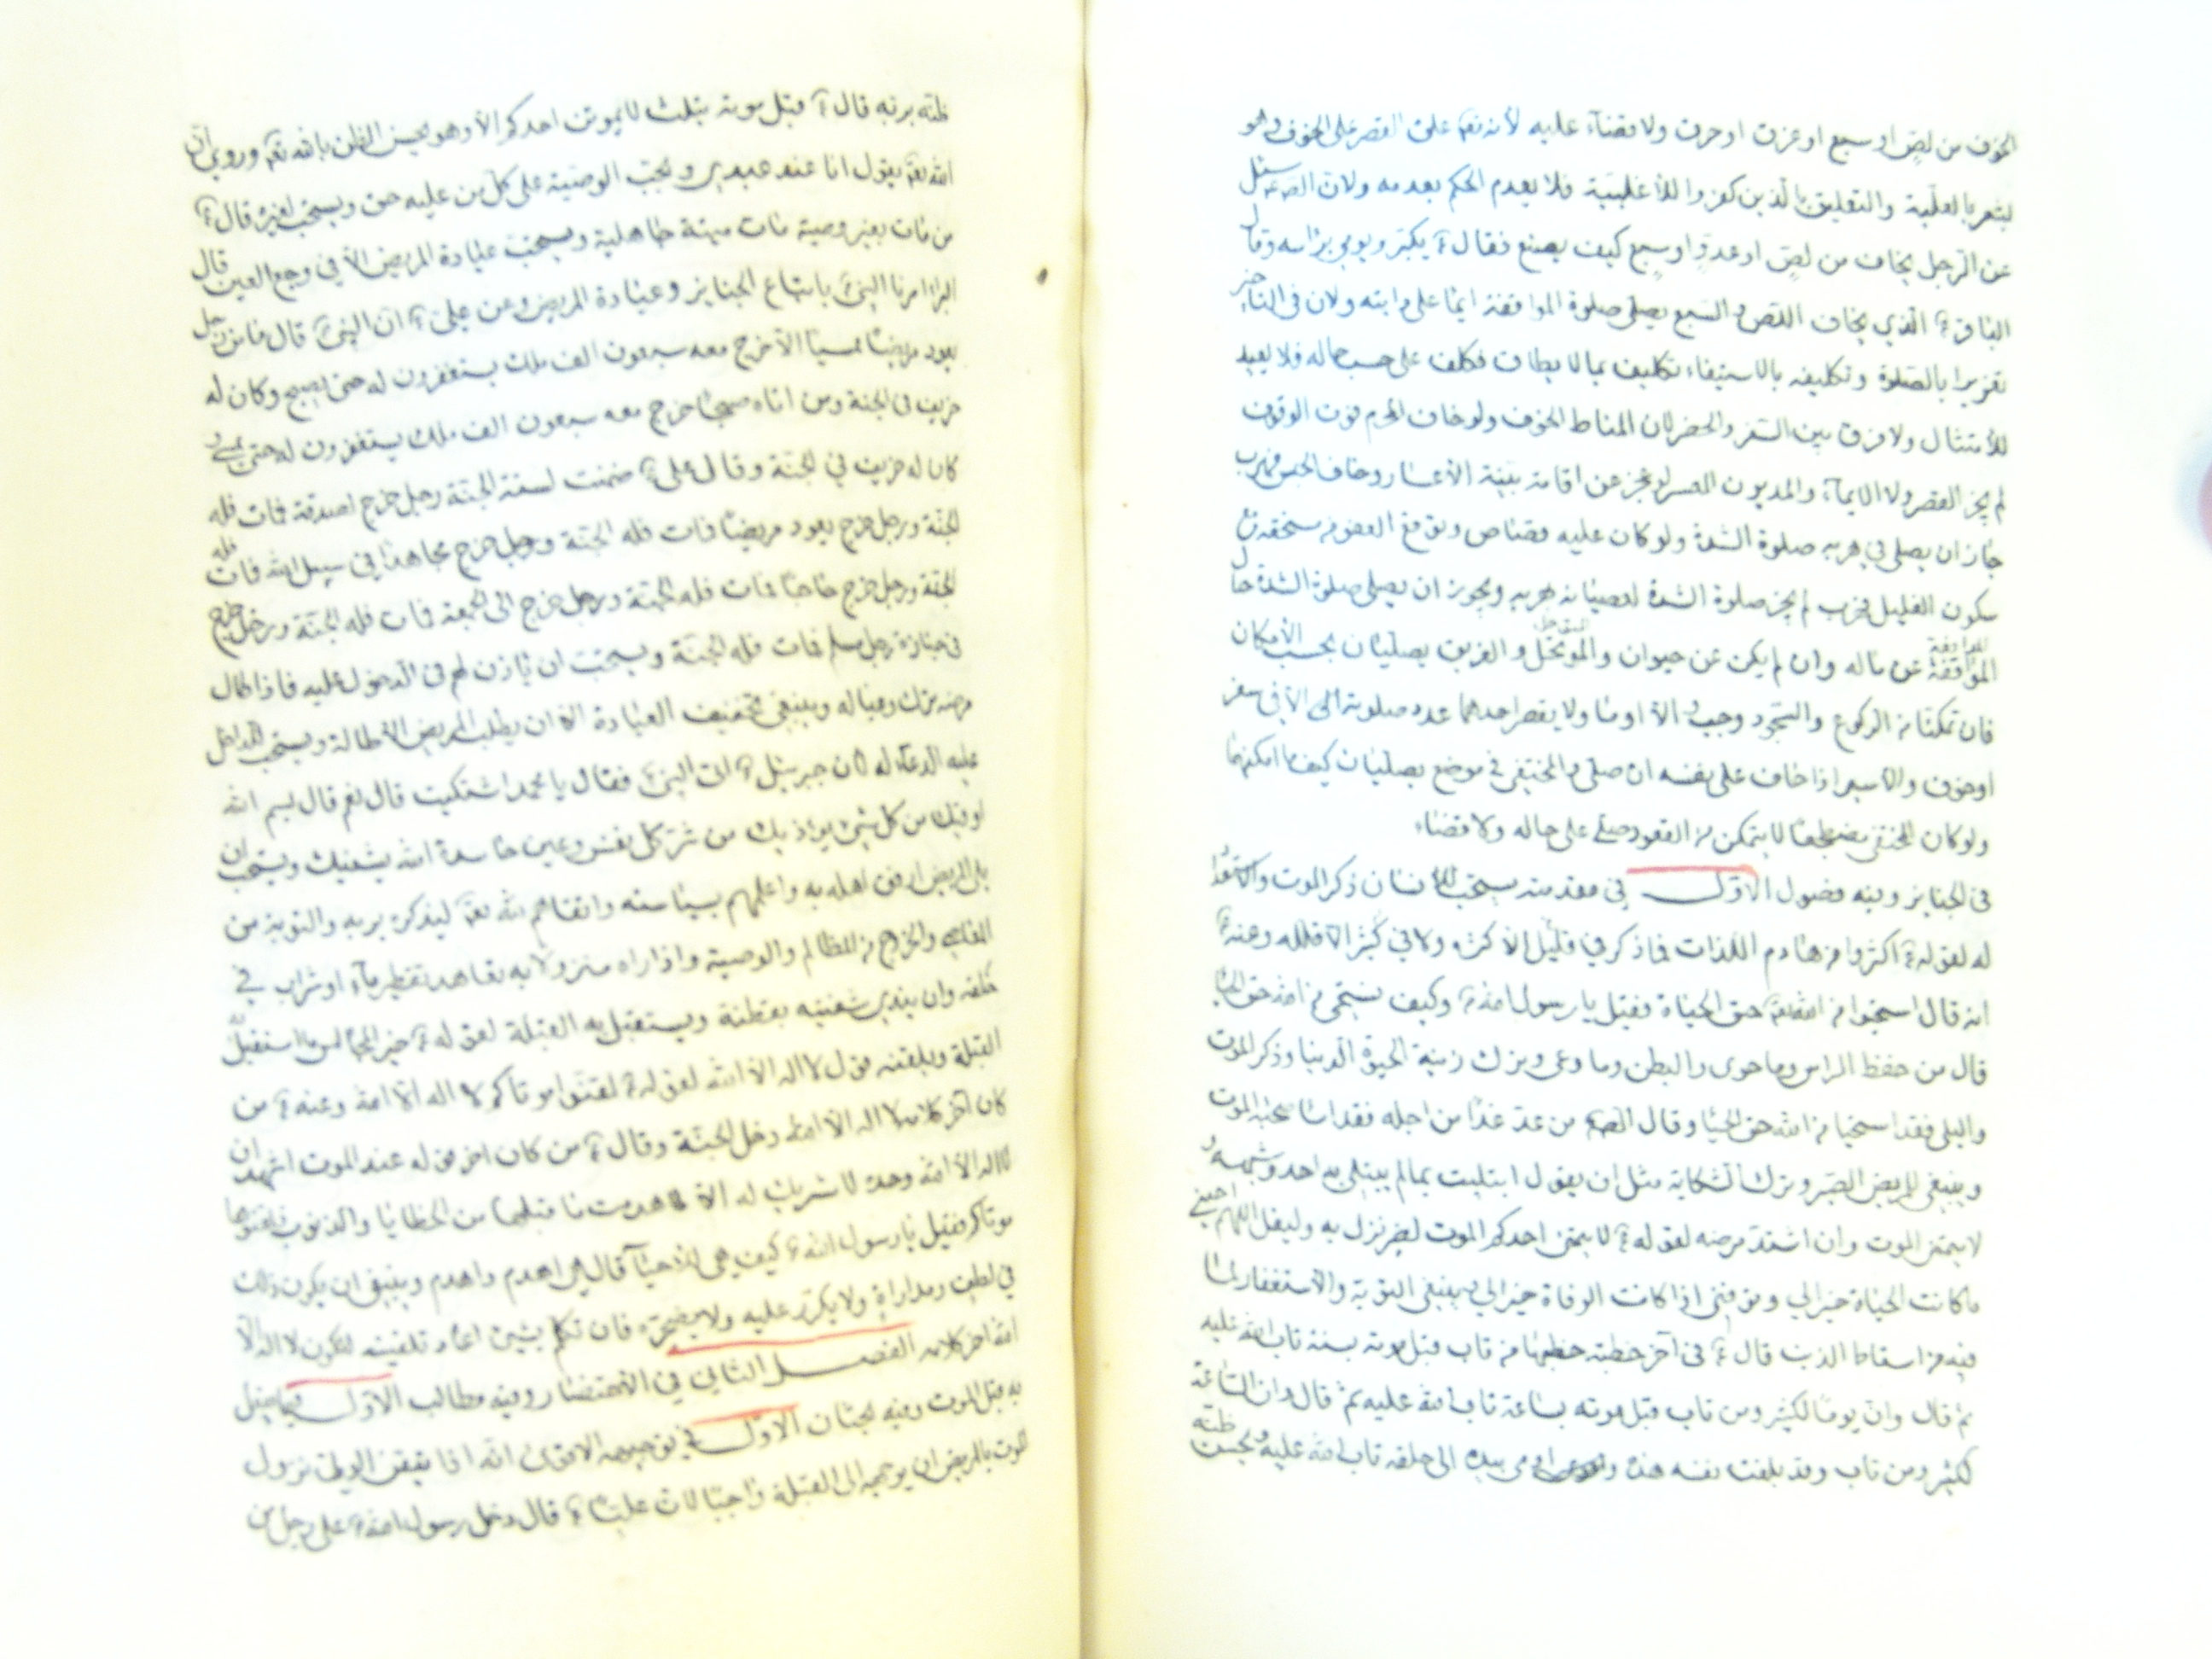 الخوف من لص او سبع او غرق او حرق ولا قضاء عليه لانه تعالى علق القصر على الخوف وهو
ليشعر بالعلية والتعليق بالذين كفروا للأغلبية فلا يعدم الحكم بعدمه ولان الصادق سئل
عن الرجل يخاف من لص او عدو او سبع كيف يصنع فقال ع يكبر ويومي براسه وقال
الباقر ع الذي يخاف اللص والسبع يصلي صلوة المواقفة ايماء على دابته ولان في التاخير
تغريرا بالصلوة وتكليفه بالاستيفاء تكليف بما لا يطاق فكلف على حسب حاله فلا يعيد
للأمتثال ولا فرق بين السفر والحضر لان المناط الخوف ولو خاف المحرم فوت الوقوف
لم يجز القصر ولا الايماء والمديون المعسر لو عجز عن اقامة بينة الأعسار وخاف الحبس فهرب
جاز ان يصلي في هربه صلوة الشدة ولو كان عليه قصاص وتوقع العفو من مستحقه مع
سكون الغليل فهرب لم يجز صلوة الشدة لعصيانه بهربه ويجوز ان يصلي صلوة الشدة حال
المواقفة عن ماله وان لم يكن عن حيوان والموتحل والغريق يصليان بحسب الأمكان
فان تمكنا من الركوع والسجود وجب والا اوما ولا يقصر احدهما عدد صلوته الا في سفر
او خوف والاسير اذا خاف على نفسه ان صلى والمختفي في موضع يصليان كيف ما امكنهما
ولو كان المختفي مضطجعا لا يتمكن من القعود صلى على حاله ولا قضاء
في الجنايز وفيه فصول الاول في مقدمته يستحب للانسان ذكر الموت والاستعداد
له لقوله ع اكثروا من هادم اللذات فما ذكر في قليل الا كثره ولا في كثير الا قلله وعنه ع
انه قال استحيوا من الله تعالى حق الحياء فقيل يا رسول الله ص وكيف نستحي من الله حق الحياء
قال من حفظ الراس وما حوى والبطن وما وعى وترك زينة الحيوة الدنيا وذكر الموت
والبلى فقد استحيا من الله حق الحيا وقال الصادق من عد غدا من اجله فقد اساء صحبة الموت
وينبغي للمريض الصبر وترك الشكاية مثل ان يقول ابتليت بما لم يبتلى به احد وشبهه و
لا يتمنى الموت وان اشتد مرضه لقوله ع لا يتمنى احدكم الموت لضر نزل به وليقل اللهم احيني
ما كانت الحياة خيرا لي وتوفني اذا كانت الوفاة خيرا لي وينبغي التوبة والأستغفار لما
فيه من اسقاط الذنب قال ع في آخر خطبة خطبها من تاب قبل موته بسنة تاب الله عليه
ثم قال وان يوما لكثير ومن تاب قبل موته بساعة تاب الله عليه ثم قال وان الساعة
لكثير ومن تاب وقد بلغت نفسه هذه واومى بيده الى حلقه تاب الله عليه ويحسن ظنه
ظنه بربه قال ع قبل موته بثلث لا يموتن احدكم الا وهو يحسن الظن بالله تعالى وروي ان
الله تعالى يقول انا عند عبدي وتجب الوصية على كل من عليه حق ويستحب لغيره قال ع
من مات بغير وصية مات ميتة جاهلية ويستحب عيادة المريض الأ في وجع العين قال
البراء امرنا النبي ص باتباع الجنايز وعيادة المريض وعن علي ع ان النبي ص قال ما من رجل
يعود مريضا ممسيا الا خرج معه سبعون الف ملك يستغفرون له حتى يصبح وكان له
خريف في الجنة ومن اتاه مصبحا خرج معه سبعون الف ملك يستغفرون له حتى يمسي و
كان له خريف في الجنة وقال علي ع ضمنت لستة الجنة رجل خرج بصدقة فمات فله
الجنة ورجل خرج يعود مريضا فمات فله الجنة ورجل خرج مجاهدا في سبيل الله فمات فله
الجنة ورجل خرج حاجا فمات فله الجنة ورجل خرج الى الجمعة فمات فله الجنة ورجل خرج
في جنازة رجل مسلم فمات فله الجنة ويستحب ان ياذن لهم في الدخول عليه فاذا طال
مرضه ترك وعياله وينبغي تخفيف العيادة الا ان يطلب المريض الاطالة ويستحب للداخل
عليه الدعاء له لان جبرئيل ع اتى النبي ص فقال يا محمد اشتكيت قال نعم قال بسم الله
ارقيك من كل شيء يوذيك من شر كل نفس وعين حاسدة الله يشفيك ويستحب ان
يلي المريض ارفق اهله به واعلمهم بسياسته واتقاهم لله تعالى ليذكره بربه والتوبة من
المعاصي والخروج من المظالم والوصية واذا راه منزولا به تعاهد تقطير ماء او شراب في
حلقه وان يندي شفتيه بقطنة ويستقبل به القبلة لقوله ع خير المجالس ما استقبل به
القبلة ويلقنه قول لا اله الا الله لقوله ع لقنوا موتاكم لا اله الا الله وعنه ع من
كان آخر كلامه لا اله الا الله دخل الجنة وقال ع من كان آخر قوله عند الموت اشهد ان
لا اله الا الله وحده لا شريك له الا هدمت ما قبلها من الخطايا والذنوب فلقنوها
موتاكم فقيل يا رسول الله ص كيف هي للأحياء قال هي اهدم واهدم وينبغي ان يكون ذلك
في لطف ومداراة ولا يكرر عليه ولا يضجره فان تكلم بشيء اعاد تلقينه لتكون لا اله الا
الله اخر كلامه الفصل الثاني في الاحتضار وفيه مطالب الاول فيما يفعل
به قبل الموت وفيه بحثان الاول في توجيهه الاقوى انه اذا تيقن الولي نزول
الموت بالمريض ان يوجهه الى القبلة واجبا لان عليا ع قال دخل رسول الله ص على رجل من